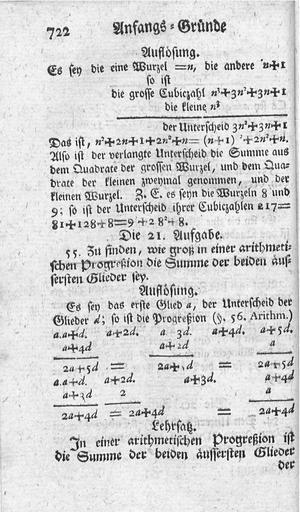 722 Anfangs-Gründe
Auflösung.
Es sey die eine Wurzel =n, die andere n+1
so ist
die grosse Cubiczahl n³+3n²+3n+1
die kleine n³
der Unterscheid 3n²+3n+1
Das ist, n²+2n+1+2n²+n=(n+1)²+2n²+n.
Also ist der verlangte Unterscheid die Summe aus
dem Quadrate der grossen Wurzel, und dem Qua-
drate der kleinen zweymal genommen, und der
kleinen Wurzel. Z. E. es seyn die Wurzeln 8 und
9; so ist der Unterscheid ihrer Cubiczahlen 217=
81+128+8=9²+2 8²+8.
Die 21. Aufgabe.
55. Zu finden, wie groß in einer arithmeti-
schen Progreßion die Summe der beiden äus-
sersten Glieder sey.
Auflösung.
Es sey das erste Glied a, der Unterscheid der
Glieder d; so ist die Progreßion (§. 56. Arithm.)
a.a+d. a+2d. a 3d. a+4d. a+5d.
a+4d a+2d a
2a+5d = 2a+5d = 2a+5d
a.a+d. a+2d. a+3d. a+4d
a+3d 2 a
2a+4d = 2a+4d = 2a+4d
Lehrsatz.
In einer arithmetischen Progreßion ist
die Summe der beiden äussersten Glieder
der